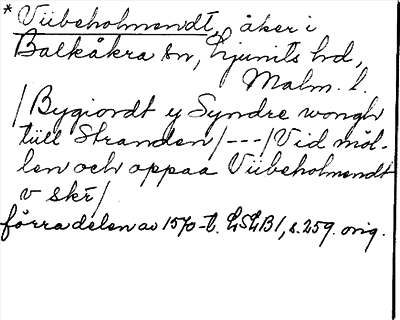 * Viibeholmendt, åker i
Balkåkra sn, Ljunits hd,
Malm. l.
/Bygiordt y Syndre wongh
tiill Stranden/---/Vid möl-
len och oppaa Viibeholmendt
v skr/
förra delen av 1570-t. LSLB1, s. 259. orig.